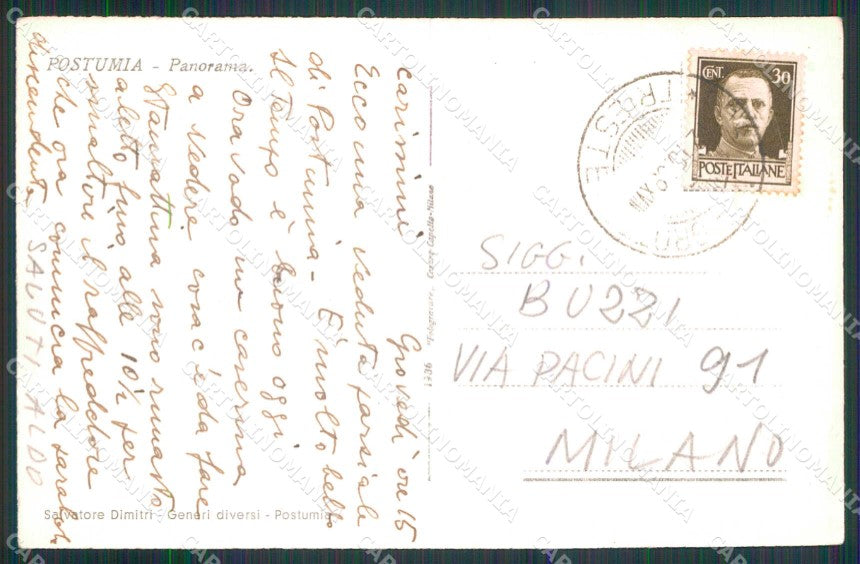 POSTUMIA - Panorama.
Giovedì ore 15
carimini
Ecco una veduta parziale
di Postumia - È molto bello
Il tempo è buono oggi
Ora vado in caserma
a vedere cosa c'è da fare
Stamattina sono rimasto
a letto fino alle 10½ per
smaltire il raffreddore
che ora comincia la parabola
discendente SALUTI ALDO
Salvatore Dimitri - Generi diversi - Postumia
1936 "Fotogravure" Cesare Capello-Milano
CENT. 30
POSTE ITALIANE
TRIESTE
SIGG.
BUZZI
VIA PACINI 91
MILANO
CARTOLINOMANIA